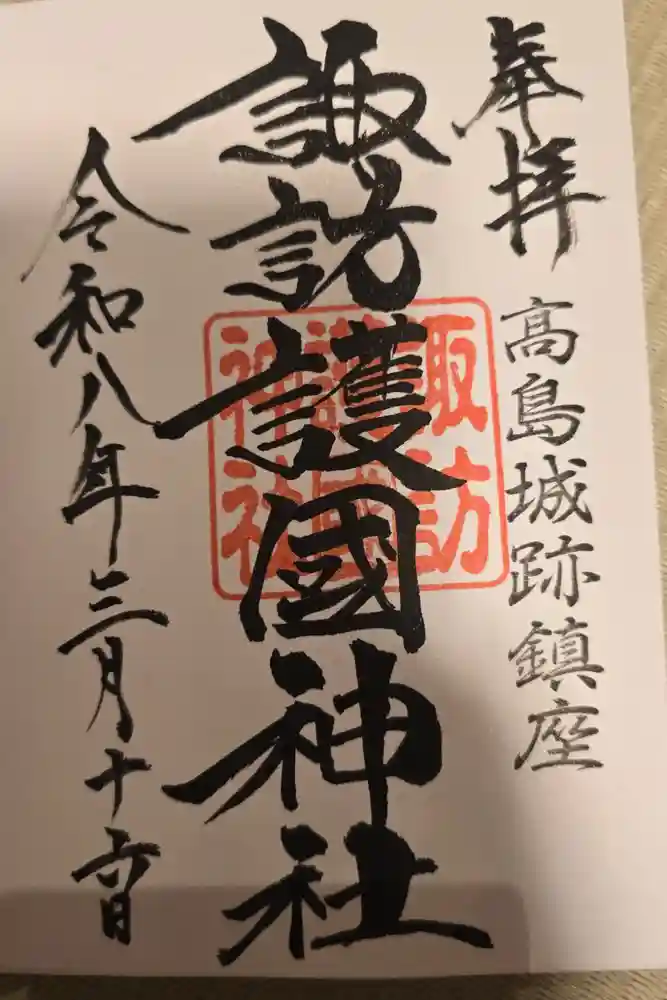 奉拝 高島城跡鎮座
諏訪護國神社
諏訪
護國
神社
令和八年三月十六日